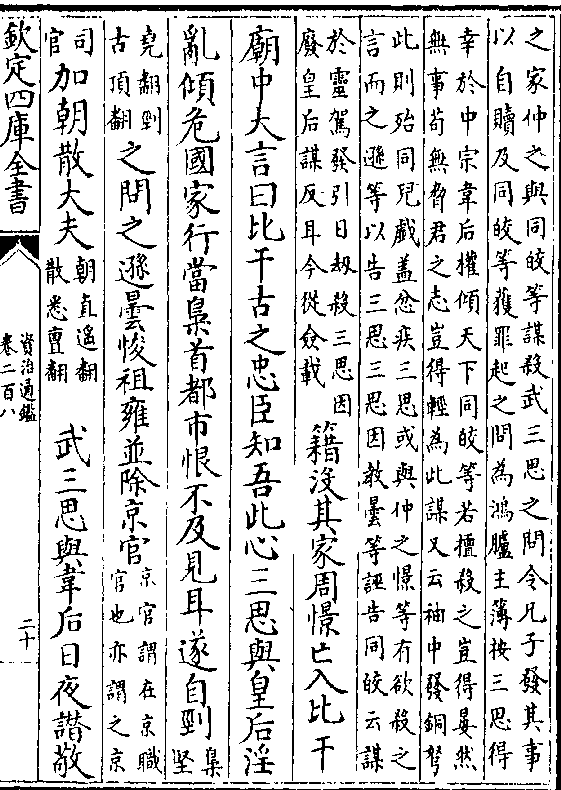 之家仲之與同皎等謀殺武三思之問令兄子發其事
以自贖及同皎等獲罪起之問為鴻臚主簿按三思得
幸於中宗韋后權傾天下同皎等若擅殺之豈得晏然
無事苟無脅君之志豈得輕為此謀又云袖中發銅弩
此則殆同兒戲盖忿疾三思或與仲之憬等有欲殺之
言而之遜等以告三思三思因教曇等誣告同皎云謀
於靈駕發引日刼殺三思因
廢皇后謀反耳今從僉載
籍沒其家周憬亡入比干
廟中大言曰比干古之忠臣知吾此心三思與皇后淫
亂傾危國家行當梟首都市恨不及見耳遂自剄
梟
堅
堯翻剄
古頂翻
之問之遜曇悛祖雍並除京官
京官謂在京職
官也亦謂之京
司
官
加朝散大夫
朝直遙翻
散悉亶翻
武三思與韋后日夜譖敬
欽定四庫全書
資治通鑑
卷二百八
二十